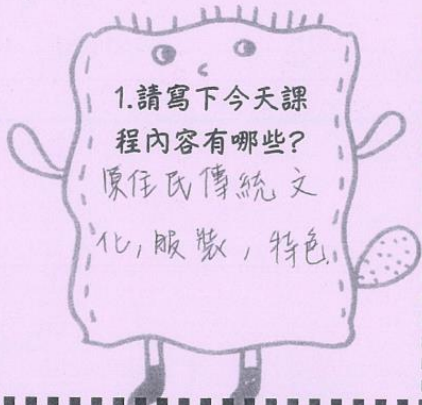 1.請寫下今天課
程內容有哪些?
原住民傳統文
化,服裝,特色.